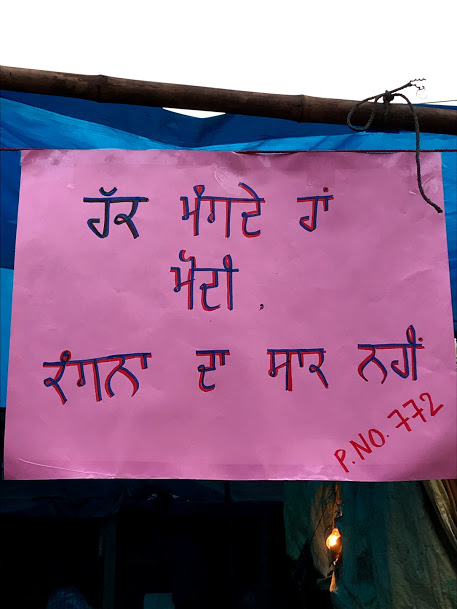 ਹੱਕ ਮੰਗਦੇ ਹਾਂ
ਮੋਦੀ,
ਕੰਗਨਾ ਦਾ ਸਾਰ ਨਹੀਂ
P.NO. 772